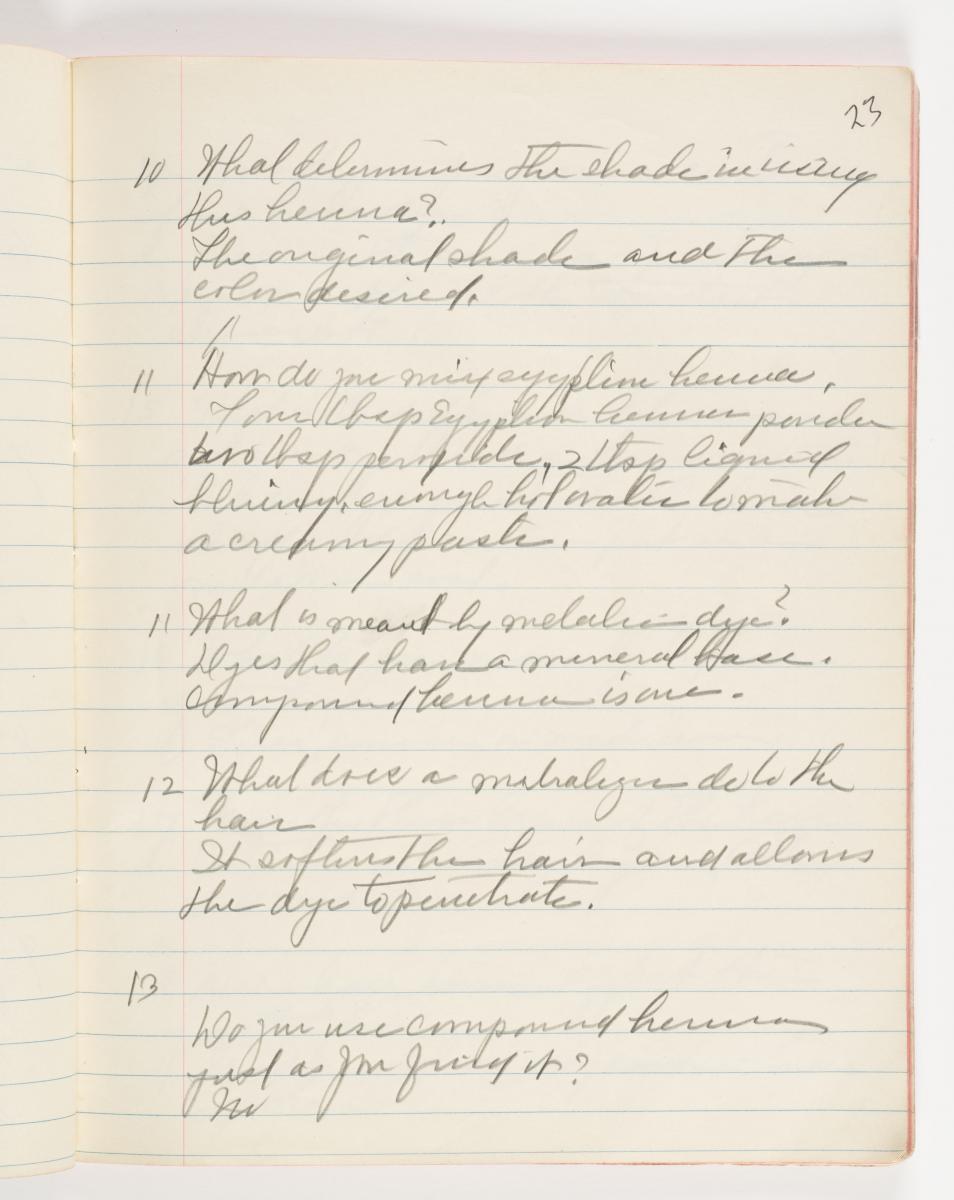 23
10 What determines the shade in using
this henna?
The original shade and the
color desired.
11
11 How do you mix egyptian henna.
Four tbsp Egyptian henna powder
two tbsp peroxide, 2 tbsp liquid
bluing, enough hot water to make
a creamy paste.
11 What is meant by metalic dye?
Dyes that have a mineral base.
Compound henna is one.
12 What does a do to the
hair
It softens the hair and allows
the dye to penetrate.
13
Do you use compound henna
just as you find it?
No